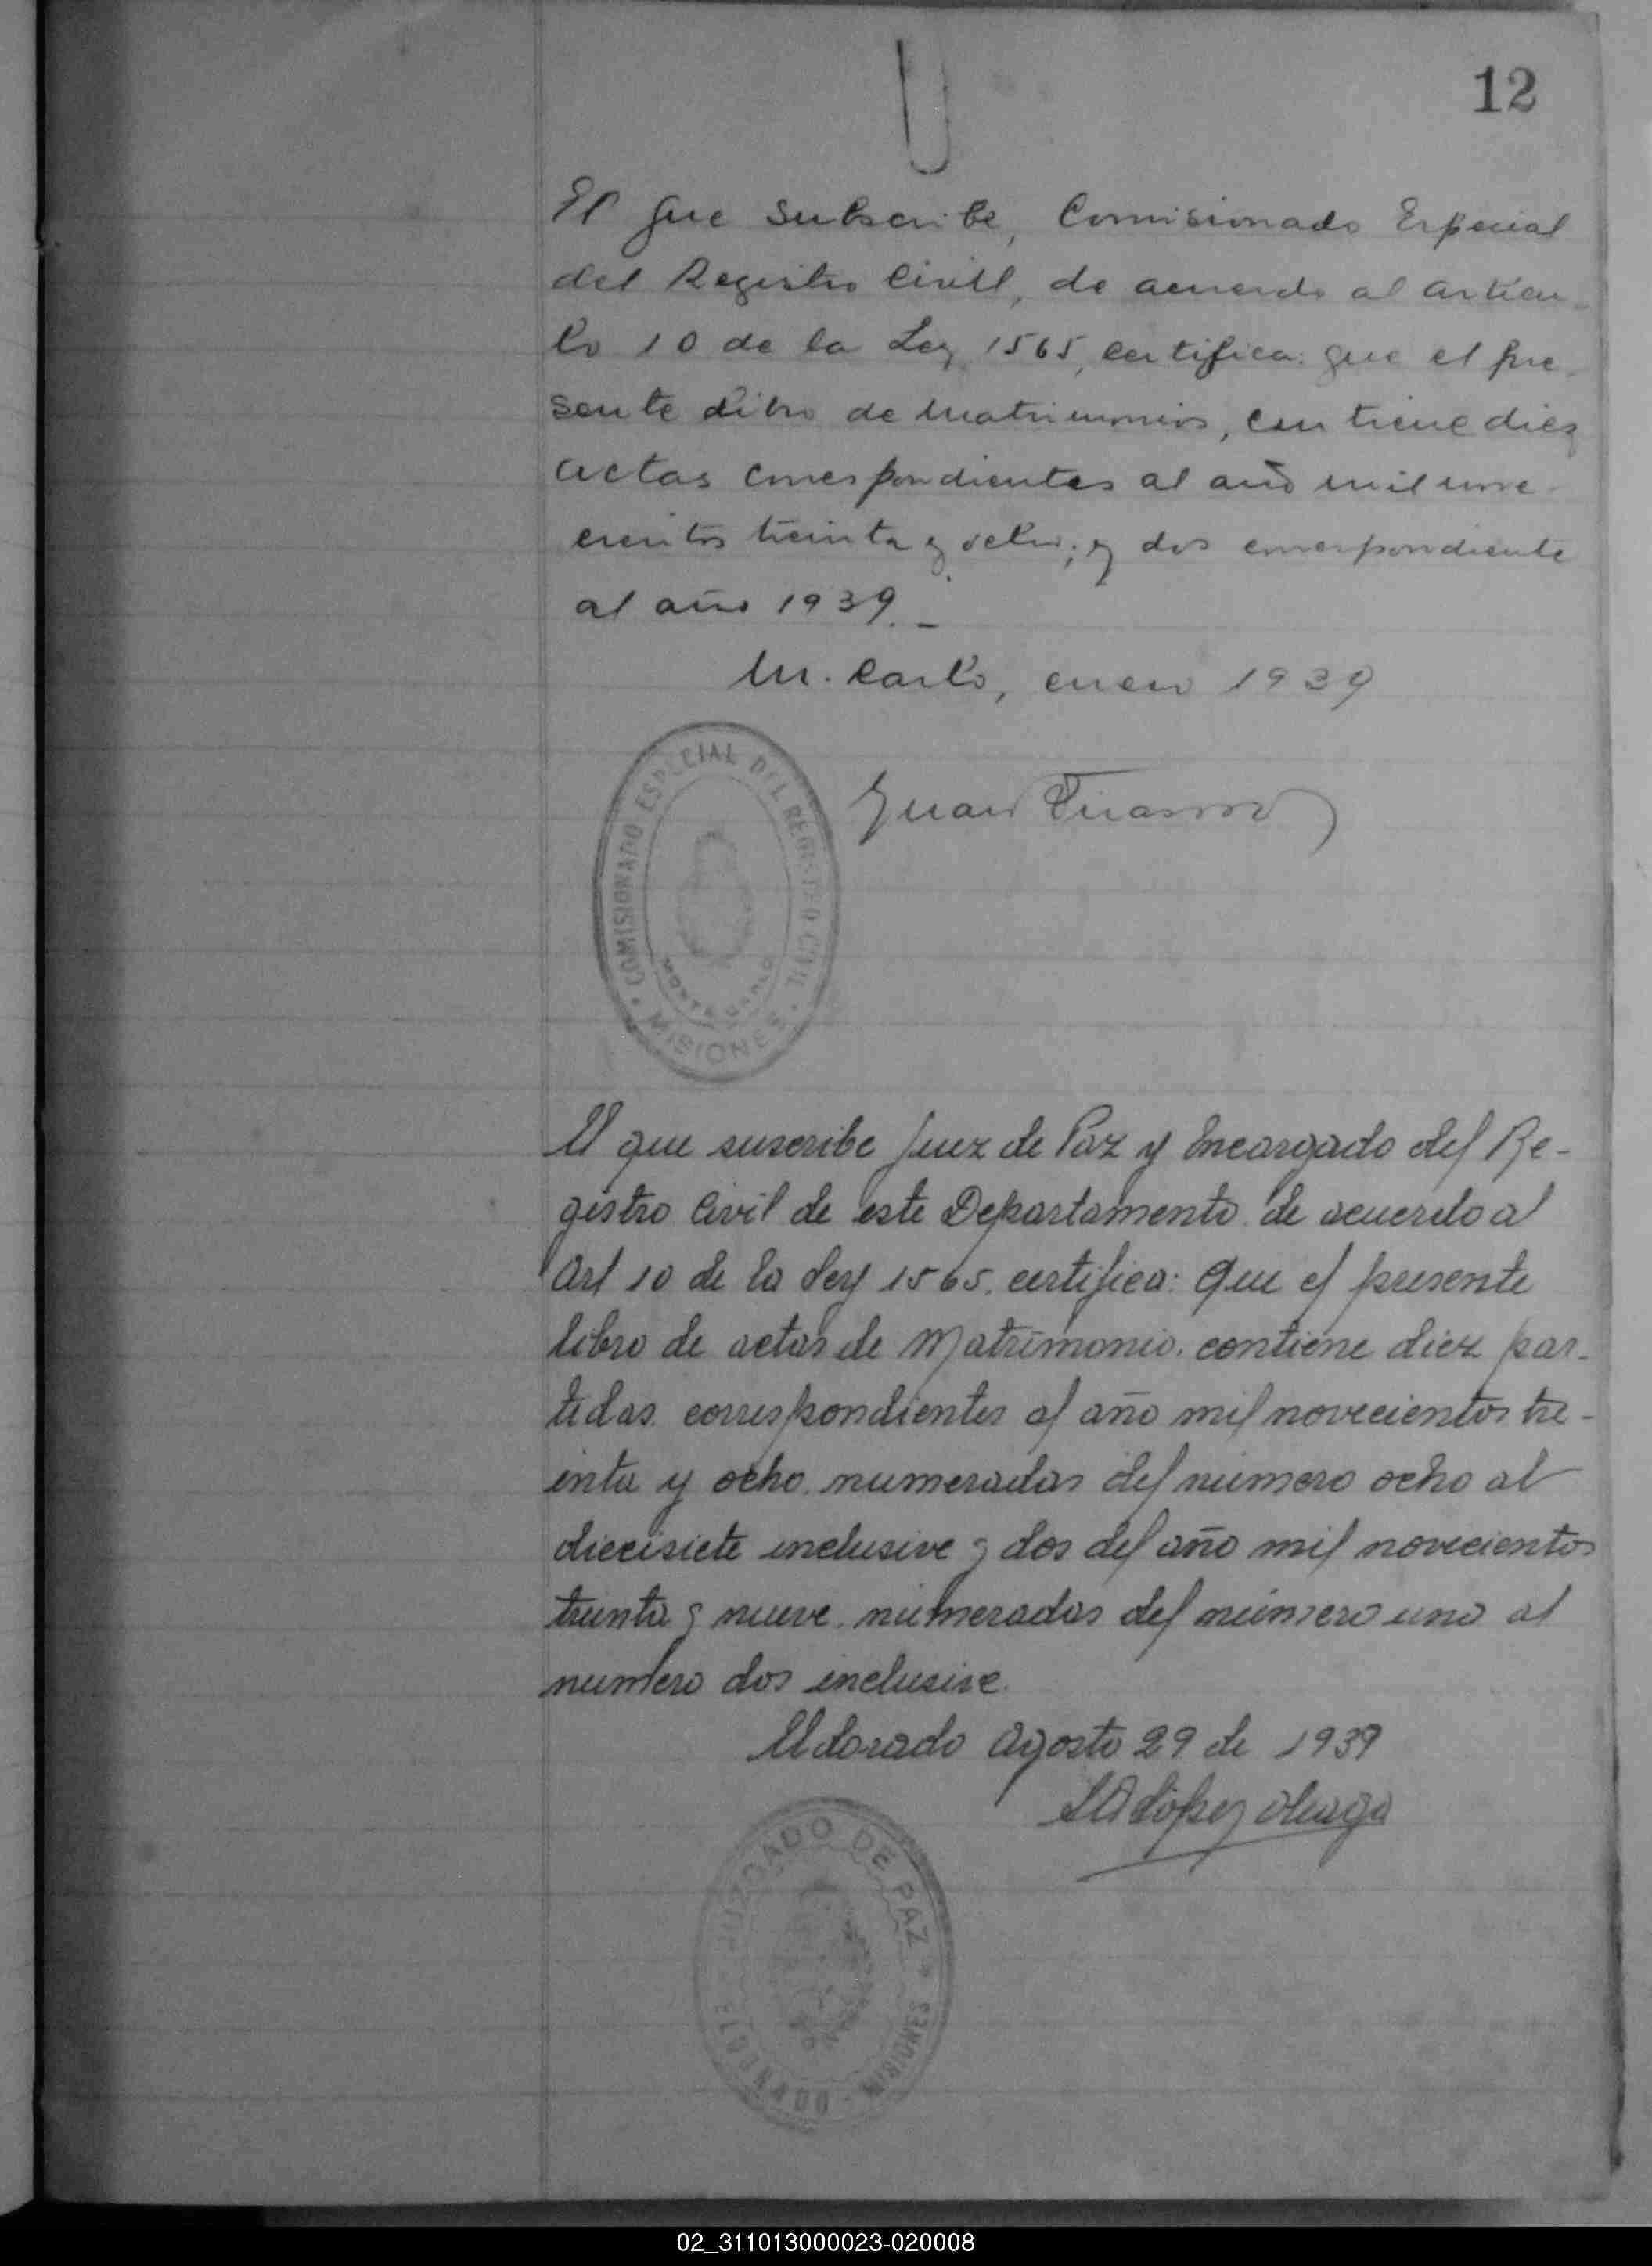 12
El que subscribe, Comisionado Especial
del Registro Civill, de acuerdo al artícu_
lo 10 de la Ley 1565, certifica: que el pre_
sente Libro de Matrimonios, contiene diez
actas correspondientes al año mil nove_
cientos treinta y ocho; y dos correspondiente
al año 1939._
M. Carlo, enero 1939
Juan
COMISIONADO ESPECIAL DEL REGISTRO CIVIL
MONTE CARLO
MISIONES
El que suscribe Juez de Paz y Encargado del Re-
gistro Civil de este Departamento de acuerdo al
Art 10 de la Ley 1565. certifica: Que el presente
libro de actas de Matrimonio. contiene diez par-
tidas correspondientes al año mil novecientos tre-
inta y ocho. numeradas del número ocho al
diecisiete inclusive y dos del año mil novecientos
treinta y nueve. numeradas del número uno al
numero dos inclusive.
Eldorado Agosto 29 de 1939
López
JUZGADO DE PAZ
ELDORADO - MISIONES
02_311013000023-020008